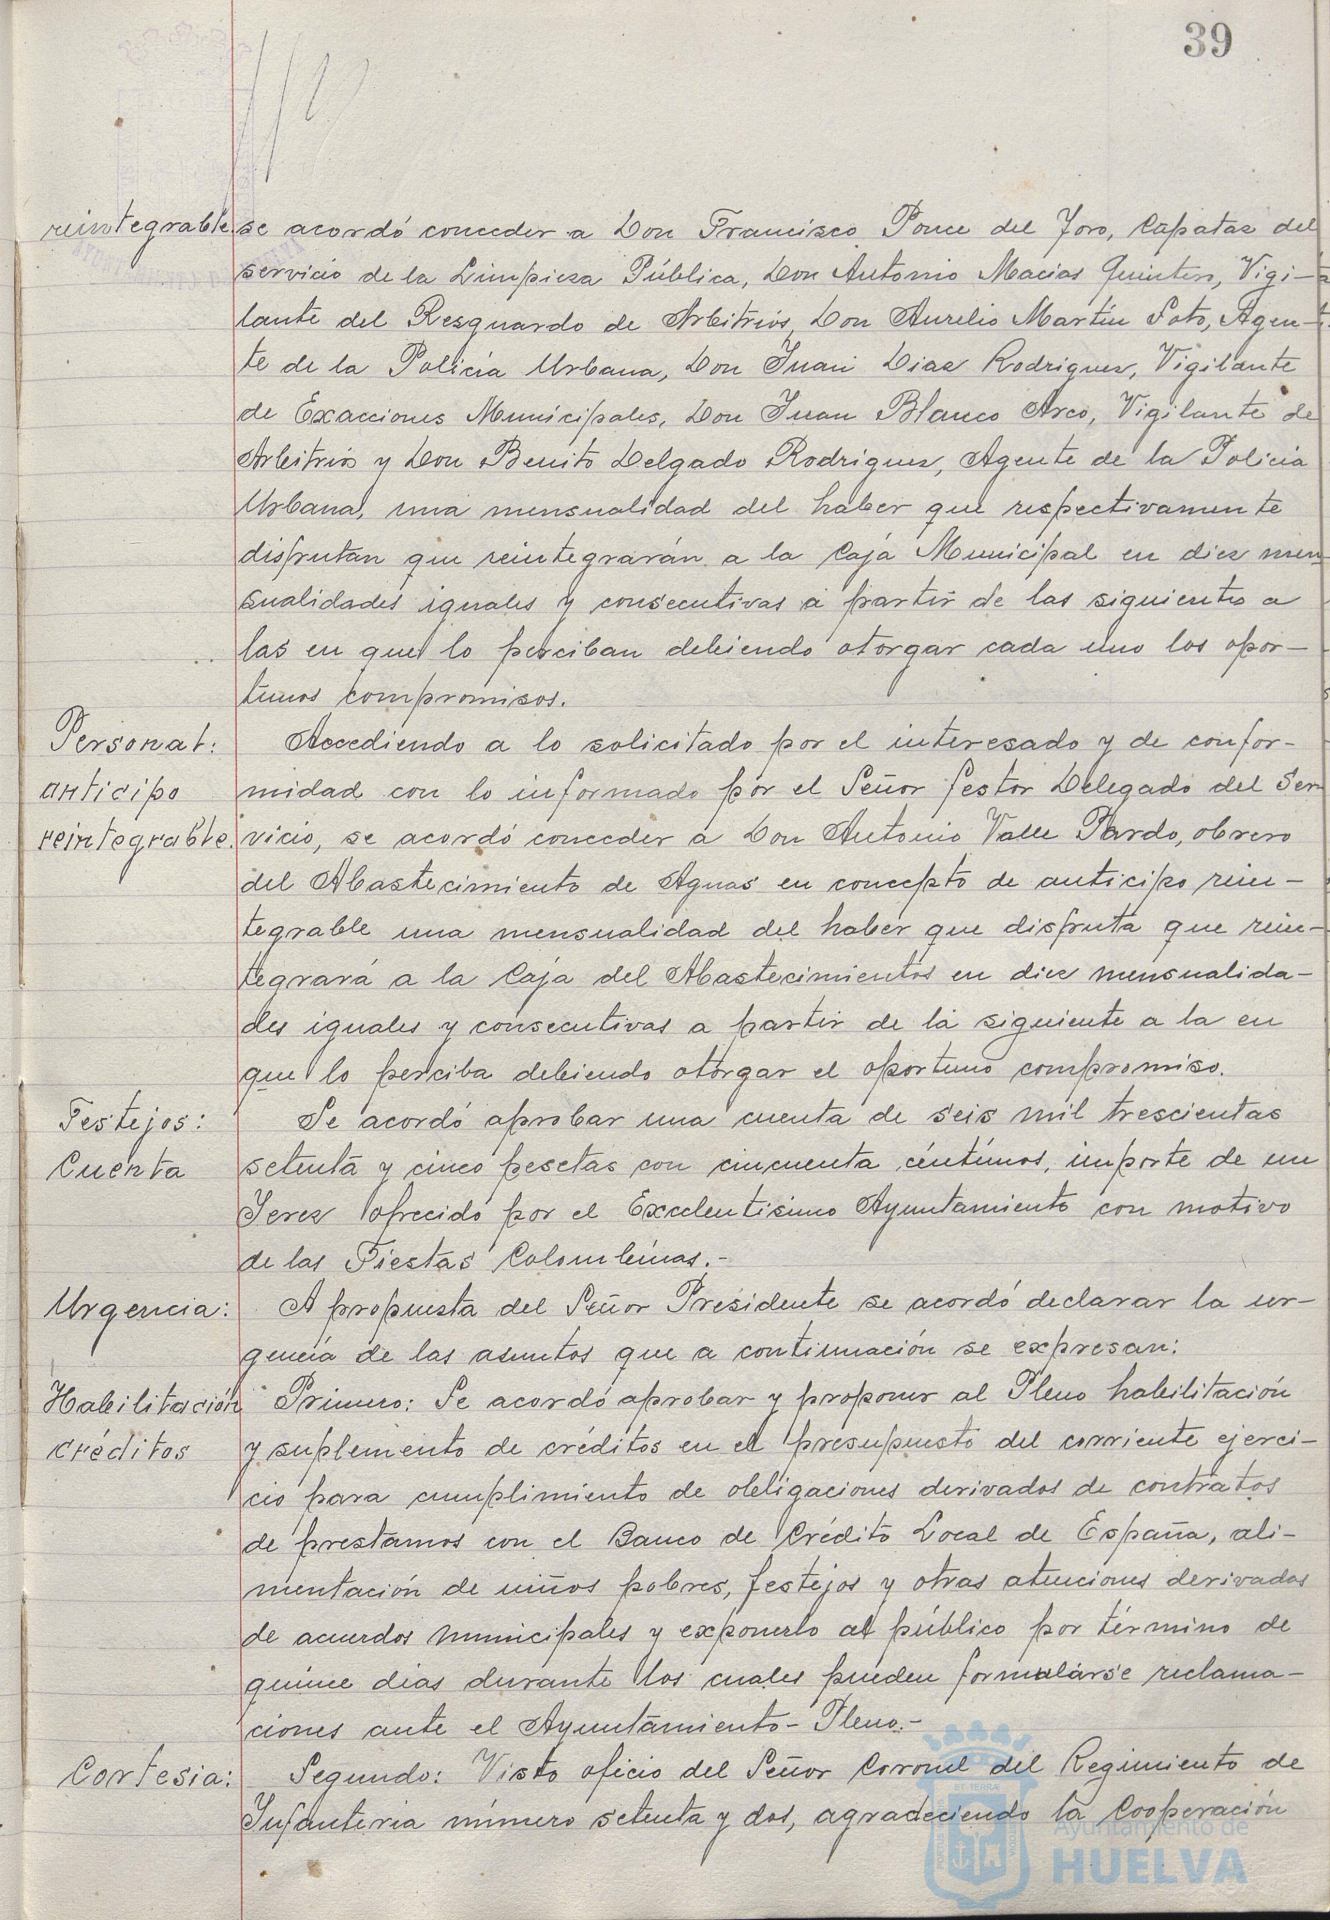 39
reintegrable. se acordó conceder a Don Francisco Ponce del Toro, Capataz del
servicio de la Limpieza Pública, Don Antonio Macias Quintero, Vigi-
lante del Resguardo de Arbitrios, Don Aurelio Martín Soto, Agen-
te de la Policía Urbana, Don Juan Diaz Rodriguez, Vigilante
de Exacciones Municipales, Don Juan Blanco Arco, Vigilante de
Arbitrios y Don Benito Delgado Rodriguez, Agente de la Policía
Urbana, una mensualidad del haber que respectivamente
disfrutan que reintegrarán a la Caja Municipal en diez men-
sualidades iguales y consecutivas a partir de las siguientes a
las en que lo perciban debiendo otorgar cada uno los opor-
tunos compromisos.
Personal: Accediendo a lo solicitado por el interesado y de confor-
anticipo midad con lo informado por el Señor Gestor Delegado del Ser-
reintegrable. vicio, se acordó conceder a Don Antonio Valle Pardo, obrero
del Abastecimiento de Aguas en concepto de anticipo rein-
tegrable una mensualidad del haber que disfruta que rein-
tegrará a la Caja del Abastecimientos en diez mensualida-
des iguales y consecutivas a partir de la siguiente a la en
que lo perciba debiendo otorgar el oportuno compromiso.
Festejos: Se acordó aprobar una cuenta de seis mil trescientas
Cuenta setenta y cinco pesetas con cincuenta céntimos, importe de un
Jerez ofrecido por el Excelentísimo Ayuntamiento con motivo
de las Fiestas Colombinas.-
Urgencia: A propuesta del Señor Presidente se acordó declarar la ur-
gencia de las asuntos que a continuación se expresan:
Habilitación Primero: Se acordó aprobar y proponer al Pleno habilitación
créditos y suplemento de créditos en el presupuesto del corriente ejerci-
cio para cumplimiento de obligaciones derivados de contratos
de prestamos con el Banco de Crédito Local de España, ali-
mentación de niños pobres, festejos y otras atenciones derivadas
de acuerdos municipales y exponerlo al público por término de
quince días durante los cuales pueden formularse reclama-
ciones ante el Ayuntamiento-Pleno.-
Cortesia: Segundo: Visto oficio del Señor Coronel del Regimiento de
Infanteria número setenta y dos, agradeciendo la Cooperación
Ayuntamiento de
HUELVA